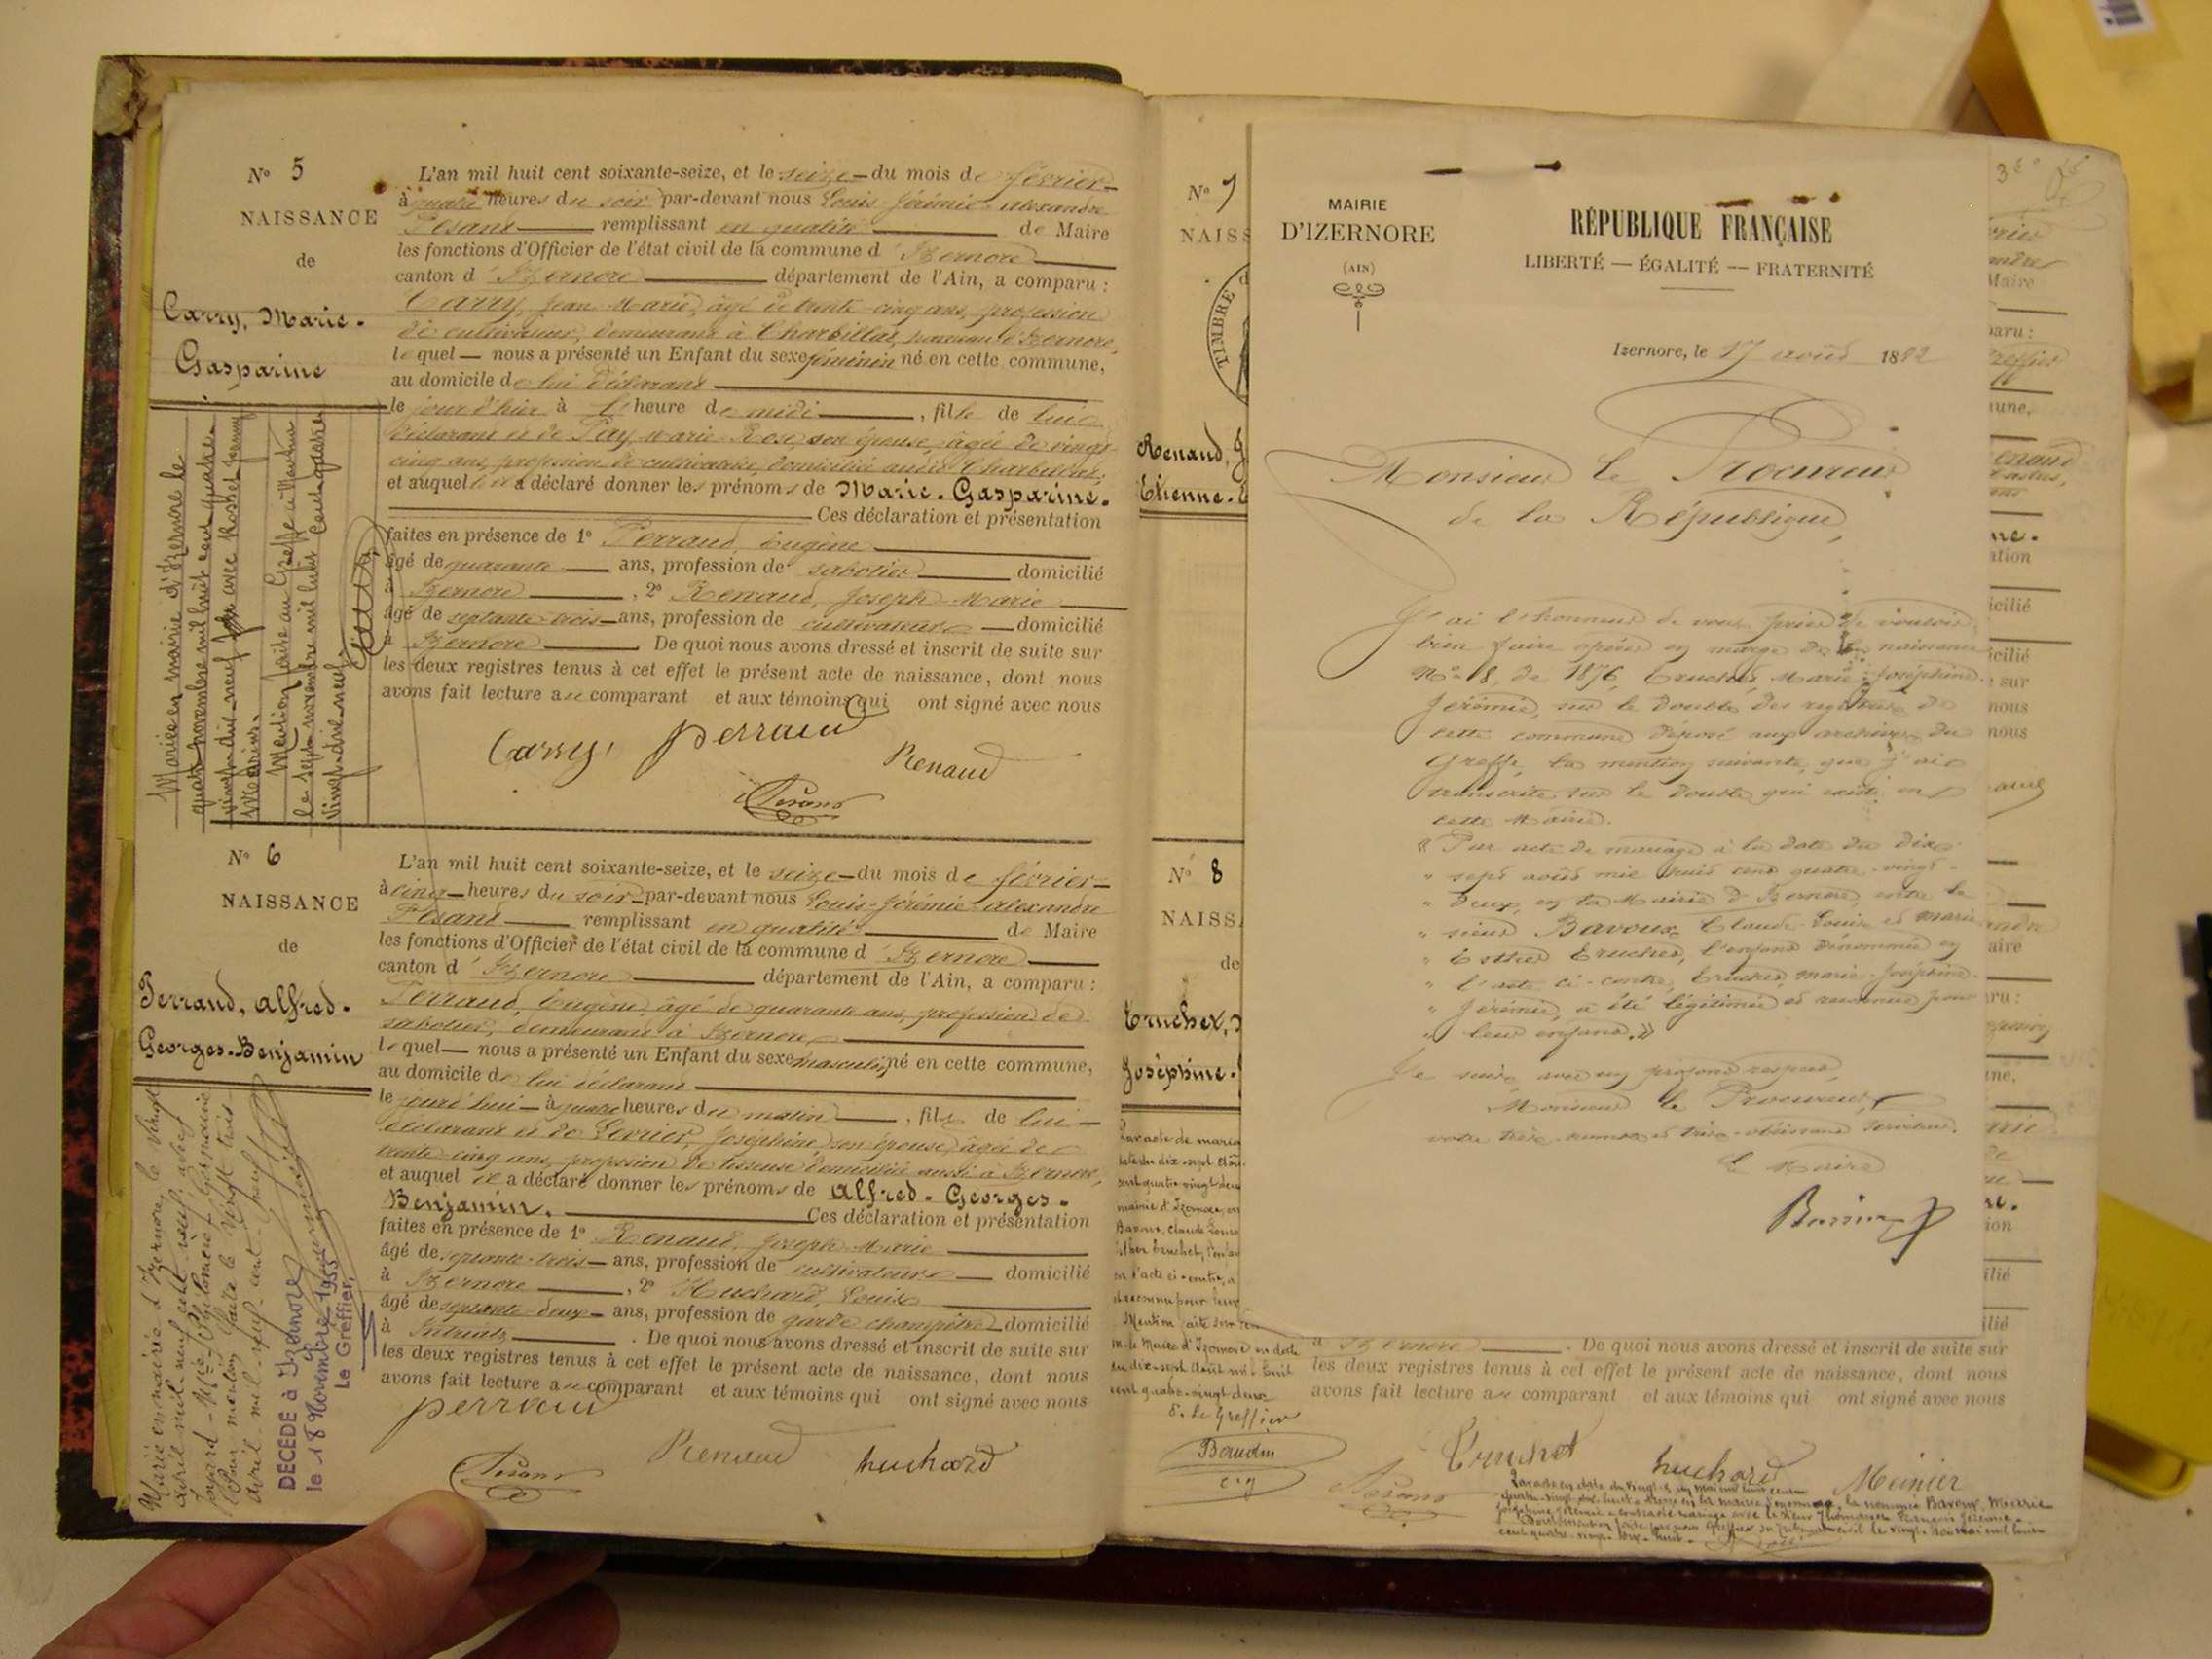 N° 5
NAISSANCE
de
Carry, Marie-
Gasparine
L'an mil huit cent soixante-seize, et le seize du mois de février
à quatre heures du soir par-devant nous Louis-Jérémie-Alexandre
remplissant en qualité de Maire
les fonctions d'Officier de l'état civil de la commune d'Izernore
canton d'Izernore département de l'Ain, a comparu :
Carry, Jean Marie, âgé de trente-cinq ans, profession
de cultivateur, demeurant à Charbillat, d'Izernore,
lequel nous a présenté un Enfant du sexe féminin né en cette commune,
au domicile de lui déclarant
le jour d'hier à l'heure de midi, fille de lui
déclarant et de Marie Rose, son épouse, âgée de vingt-
cinq ans, profession de cultivatrice, domiciliée audit Charbillat,
et auquel il a déclaré donner les prénoms de Marie-Gasparine.
Ces déclaration et présentation
faites en présence de 1° Perraud, Eugène
âgé de quarante ans, profession de sabotier domicilié
à Izernore, 2° Renaud, Joseph-Marie
âgé de septante-trois ans, profession de cultivateur domicilié
à Izernore. De quoi nous avons dressé et inscrit de suite sur
les deux registres tenus à cet effet le présent acte de naissance, dont nous
avons fait lecture au comparant et aux témoins qui ont signé avec nous
Carry perraud Renaud
Mariée en mairie d'Izernore le
quatre novembre mil huit cent quatre-
vingt-dix-neuf avec
Mention faite au Greffe à Nantua
le sept novembre mil huit cent quatre
vingt-dix-neuf
N° 6
NAISSANCE
de
Perraud, Alfred-
Georges-Benjamin
L'an mil huit cent soixante-seize, et le seize du mois de février
à cinq heures du soir par-devant nous Louis-Jérémie-Alexandre
remplissant en qualité de Maire
les fonctions d'Officier de l'état civil de la commune d'Izernore
canton d'Izernore département de l'Ain, a comparu :
Perraud, Eugène, âgé de quarante ans, profession de
sabotier, demeurant à Izernore,
lequel nous a présenté un Enfant du sexe masculin né en cette commune,
au domicile de lui déclarant
le jourd'hui à quatre heures du matin, fils de lui
déclarant et de Joséphine, son épouse, âgée de
trente cinq ans, profession de tisseuse domiciliée aussi à Izernore,
et auquel il a déclaré donner les prénoms de Alfred-Georges-
Benjamin. Ces déclaration et présentation
faites en présence de 1° Renaud, Joseph-Marie
âgé de ans, profession de cultivateur domicilié
à Izernore, 2° Huchard, Louis
âgé de septante-deux ans, profession de garde champêtre domicilié
à. De quoi nous avons dressé et inscrit de suite sur
les deux registres tenus à cet effet le présent acte de naissance, dont nous
avons fait lecture au comparant et aux témoins qui ont signé avec nous
perraud
Renaud huchard
Marié en mairie d'Izernore, le vingt
avril mil-neuf-cent
DÉCÉDÉ à Izernore
le 18 Novembre 1955
Le Greffier,
N° 7
NAISS
TIMBRE
Renaud, J
Etienne-E
N° 8
NAISS
de
Truchet,
Joséphine-
Par acte de maria
date du dix-sept août
cent quatre-vingt deux
mairie d'Izernore, en
Bavoux, Claude Louis
Esther Truchet, l'enfan
en l'acte ci-contre, a
et reconnu pour leur
m. le Maire d'Izernore en date
du dix-sept août mil huit
cent quatre-vingt deux
Le Greffier
MAIRIE
D'IZERNORE
(AIN)
RÉPUBLIQUE FRANÇAISE
LIBERTÉ — ÉGALITÉ — FRATERNITÉ
Izernore, le 17 août 1882
Monsieur le Procureur
de la République,
J'ai l'honneur de vous prier de vouloir
bien faire opérer en marge de la naissance
N° 8, de 1876, Truchet, Marie-Joséphine-
Jérémie, sur le double des registres de
cette commune déposé aux archives du
Greffe, la mention suivante, que j'ai
transcrite sur le double qui existe en
cette Mairie.
« Par acte de mariage à la date du dix-
" sept août mil huit cent quatre-vingt-
" deux, en la Mairie d'Izernore, entre le
" sieur Bavoux Claude-Louis et Marie
" Esther Truchet, l'enfant dénommée en
" l'acte ci-contre, Truchet, Marie-Joséphine-
" Jérémie, a été légitimée et reconnue pour
" leur enfant. »
Je suis, avec un profond respect,
Monsieur le Procureur,
votre très-humble et très-obéissant serviteur.
Le Maire
à Izernore. De quoi nous avons dressé et inscrit de suite sur
les deux registres tenus à cet effet le présent acte de naissance, dont nous
avons fait lecture au comparant et aux témoins qui ont signé avec nous
Truchet huchard Meunier